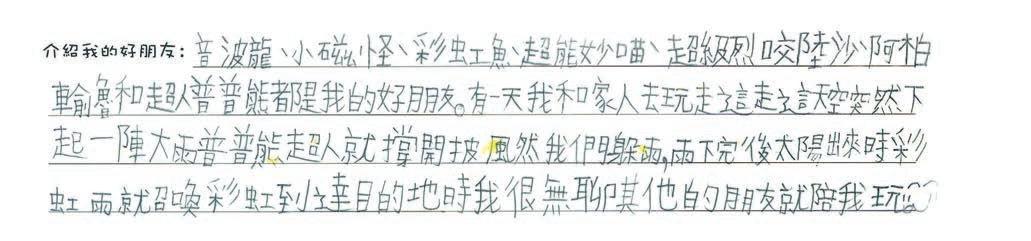 介紹我的好朋友：音波龍、小磁怪、彩虹魚、超能妙喵、超級烈咬陸沙、阿柏
輸魯和超人普普熊都是我的好朋友。有一天我和家人去玩走這走這天空突然下
起一陣大雨普普熊超人就撐開披風然我們躲雨，雨下完後太陽出來時彩
虹雨就召喚彩虹到達目的地時我很無聊其他的朋友就陪我玩